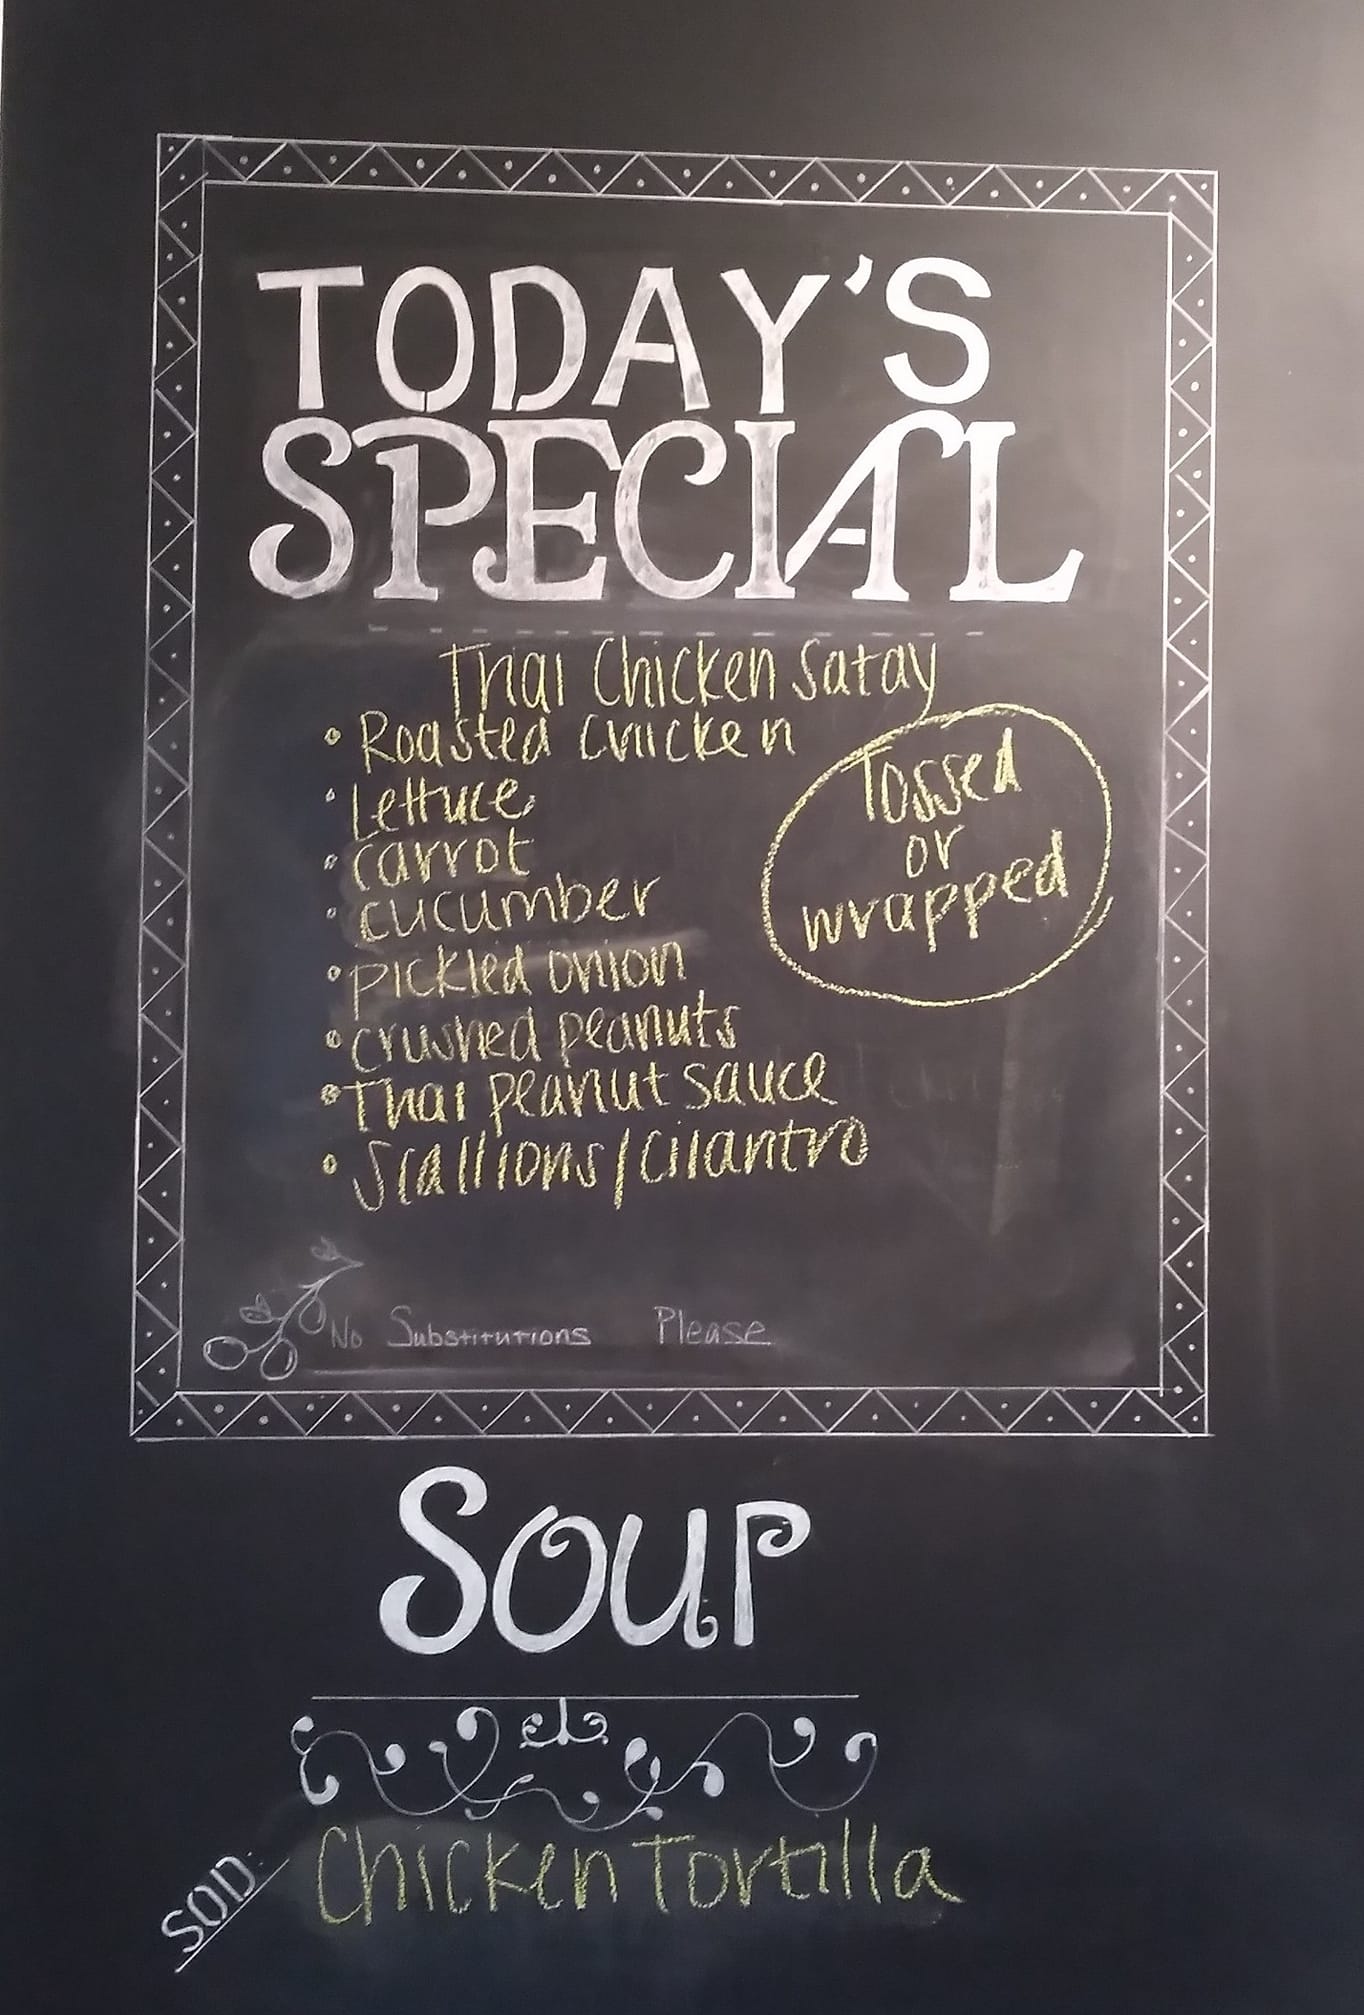 TODAY'S
SPECIAL
Thai Chicken Satay
• Roasted Chicken
• Lettuce
• carrot
• cucumber
• pickled onion
• crushed peanuts
• Thai peanut sauce
• Scallions/cilantro
Tossed
or
wrapped
No Substitutions Please
Soup
SOID:
Chicken Tortilla